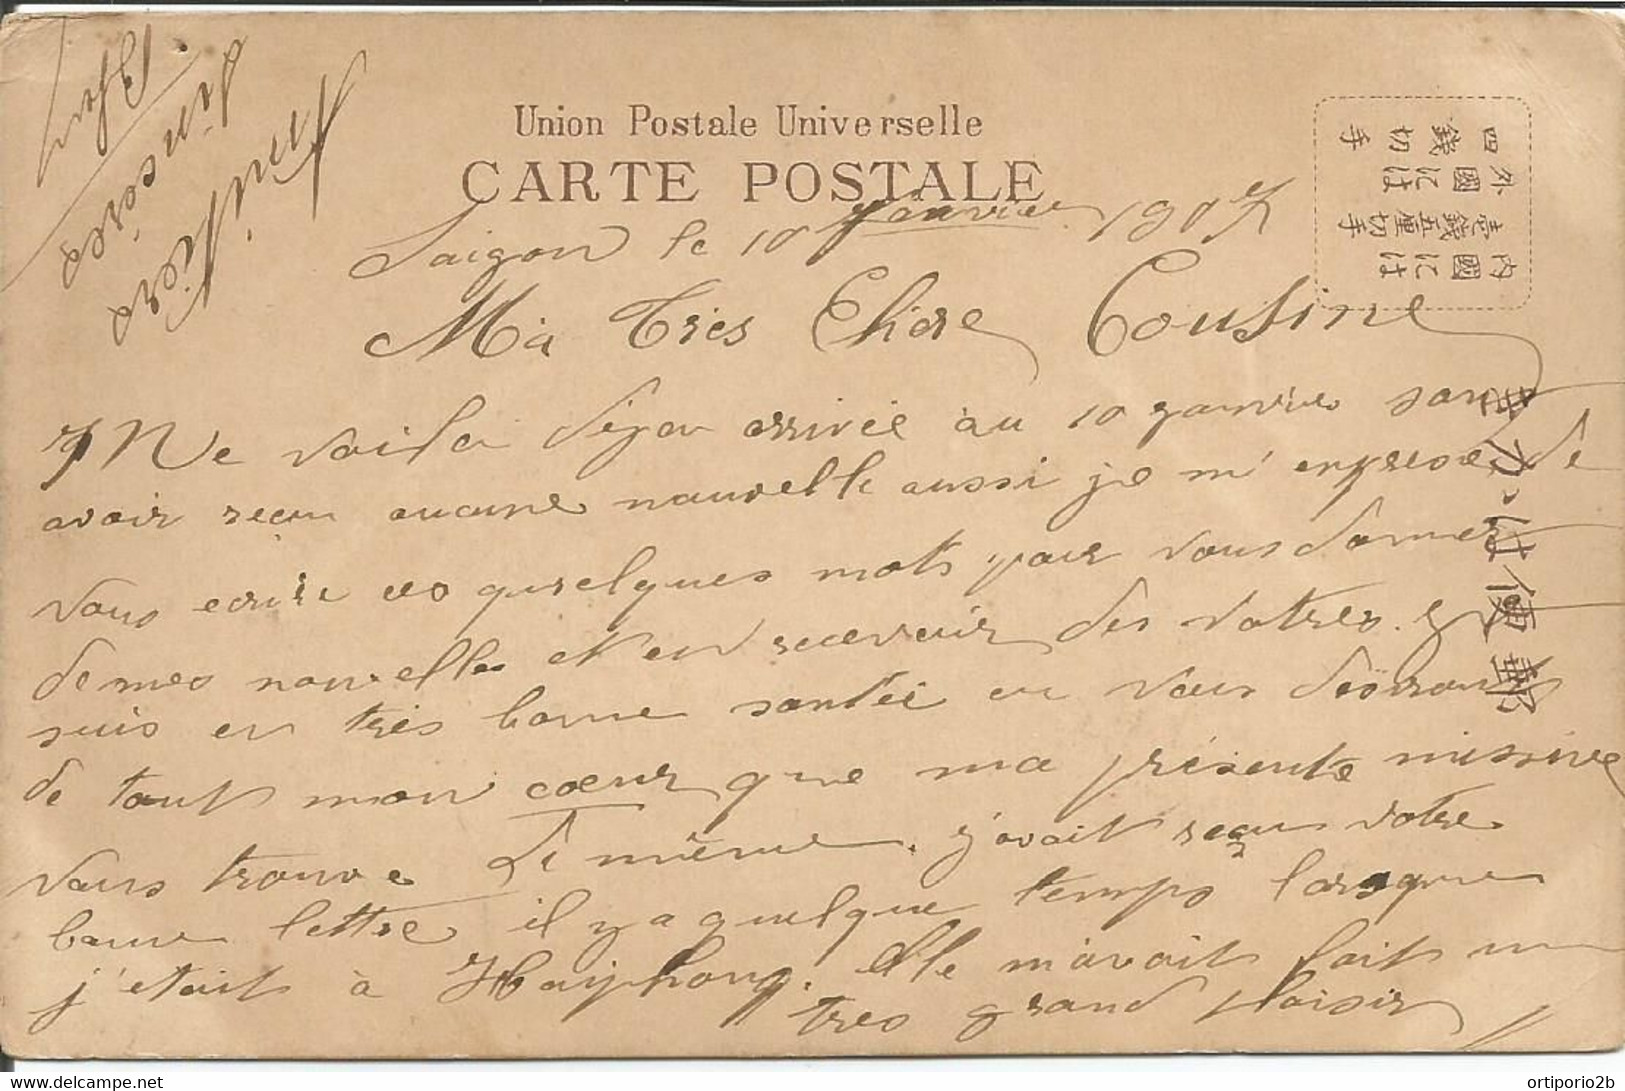 Union Postale Universelle
CARTE POSTALE
Saigon le 10 Janvier 1907
Ma Très Chère Cousine
Me voila déja arrivée au 10 janvier sans
avoir reçu aucune nouvelle aussi je m'enpresse de
vous ecrire ces quelques mots pour vous donner
de mes nouvelles et en recevoir des votres. Je
suis en très bonne santée en vous désirant
de tout mon cœur que ma présente missive
vous trouve de même. j'avait reçu votre
bonne lettre il y a quelque temps lorsque
j'etait à Haïphong. Elle m'avait fait un
tres grand plaisir
Amitiés
sincères
郵便はかき
内國には
壹錢五厘切手
外國には
四錢切手
ortiporio2b